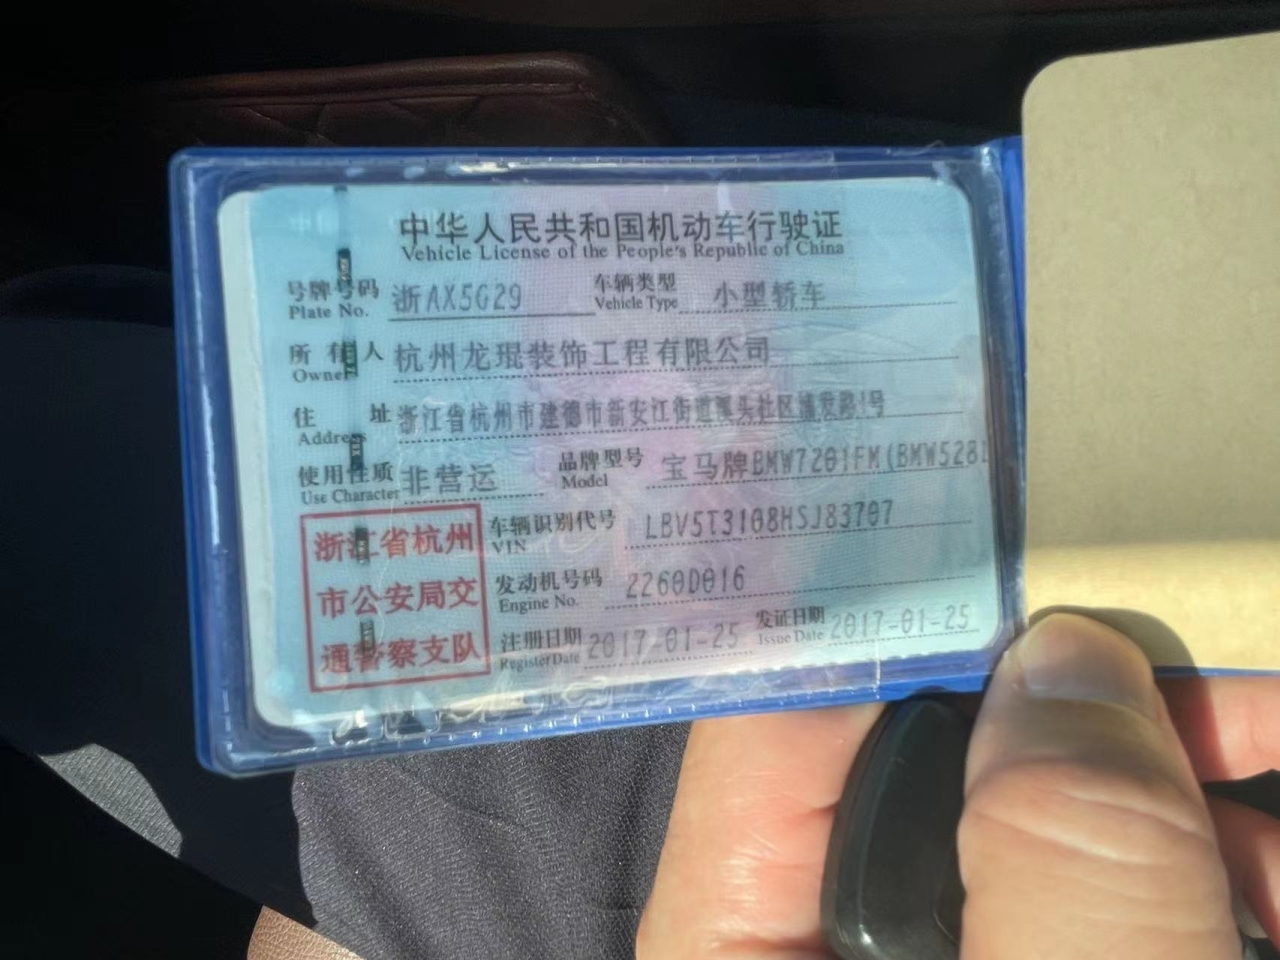 中华人民共和国机动车行驶证
Vehicle License of the People's Republic of China
号牌号码 浙AX5G29 车辆类型 小型轿车
Plate No. Vehicle Type
所有人 杭州龙琨装饰工程有限公司
Owner
住址 浙江省杭州市建德市新安江街道 头社区 发路1号
Address
使用性质 非营运 品牌型号 宝马牌BMW7201FM(BMW528L
Use Character Model
浙江省杭州
市公安局交
通警察支队
车辆识别代号 LBV5T3108HSJ83707
VIN
发动机号码 2260D016
Engine No.
注册日期 2017-01-25 发证日期 2017-01-25
Register Date Issue Date